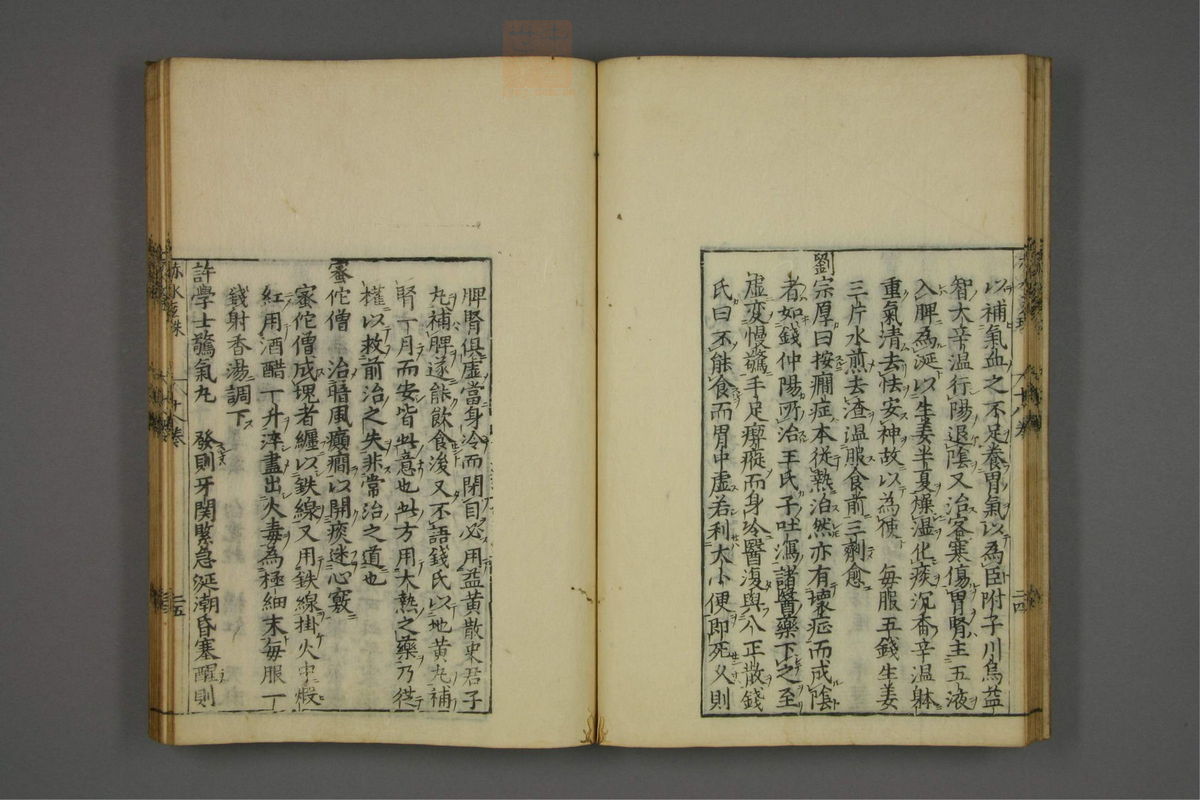 以補氣血之不足養胃氣以為臣附子川烏益
智大辛温行陽退陰又治客寒傷胃腎主五液
入脾為涎以生姜半夏燥湿化痰沉香辛温躰
重氣清去怯安神故以為使 毎服五錢生姜
三片水煎去渣温服食前三劑愈
劉宗厚曰按癇症本従熱泊然亦有壊症而成陰
者如錢仲陽所治王氏子吐瀉諸醫藥下之至
虚変慢驚手足瘈瘲而身冷醫復與八正散錢
氏曰不能食而胃中虚若利大小便即死乂則
脾腎俱虚當身冷而閉目必用益黄散史君子
丸補脾遂能飲食後又不語錢氏以地黄丸補
腎一月而安皆此意也此方用大熱之藥乃従
權以救前治之失非常治之道也
蜜佗僧 治暗風癲癇以開痰迷心竅
蜜佗僧成塊者纏以鉄線又用鉄線掛火中煅
紅用酒醋一升淬盡出火毒為極細末毎服一
錢射香湯調下
許学士驚氣丸 發則牙関緊急涎潮昏塞醒則
赤水玄珠 十八卷 二五